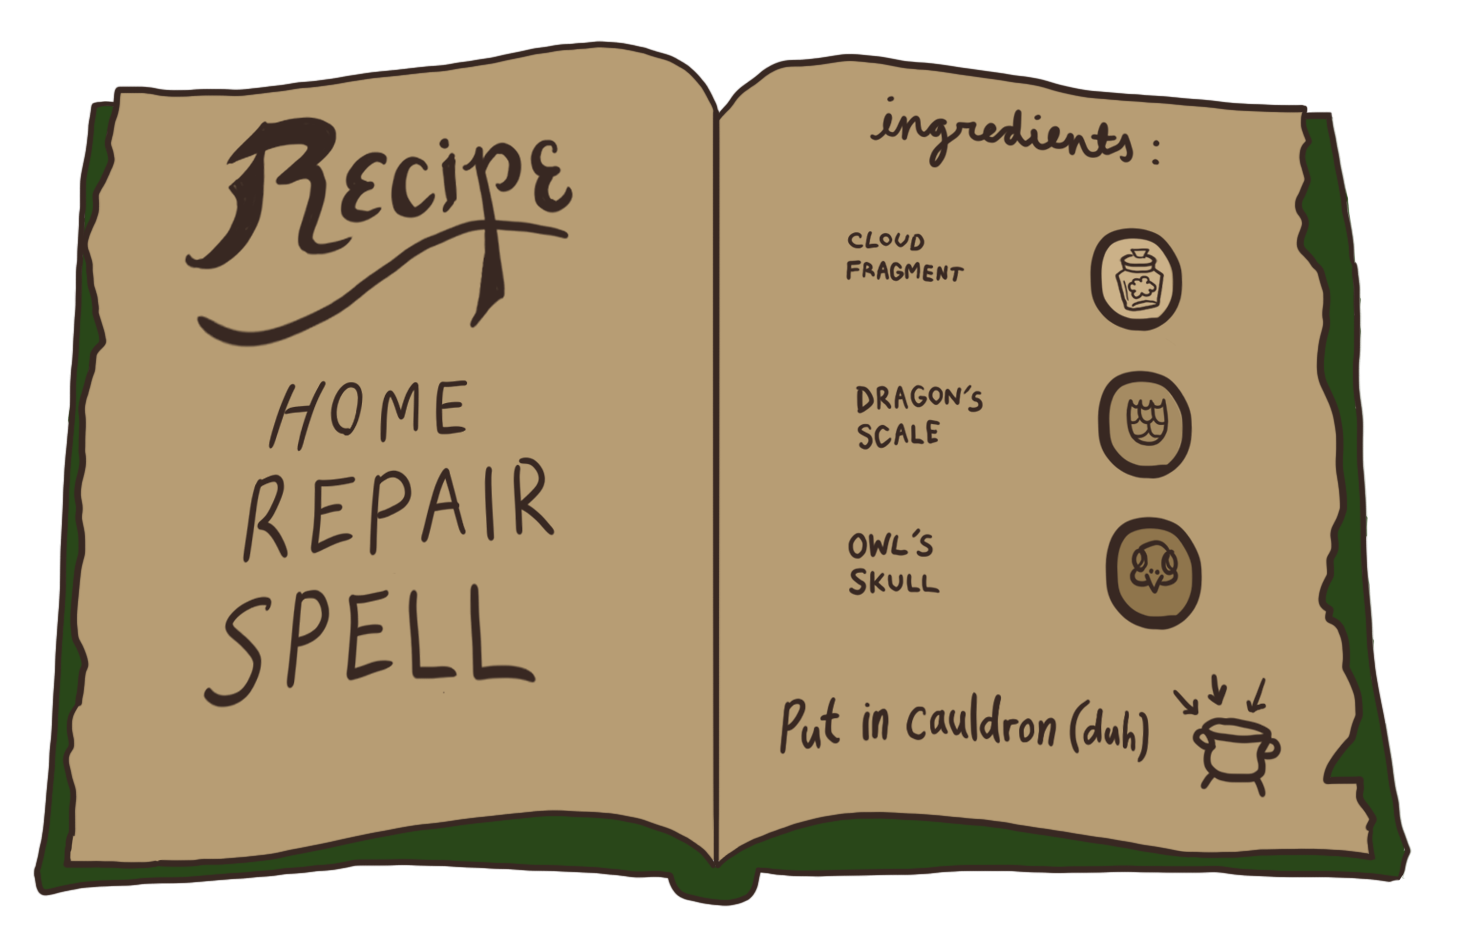 Recipe
HOME
REPAIR
SPELL
ingredients:
CLOUD
FRAGMENT
DRAGON'S
SCALE
OWL'S
SKULL
Put in cauldron (duh)